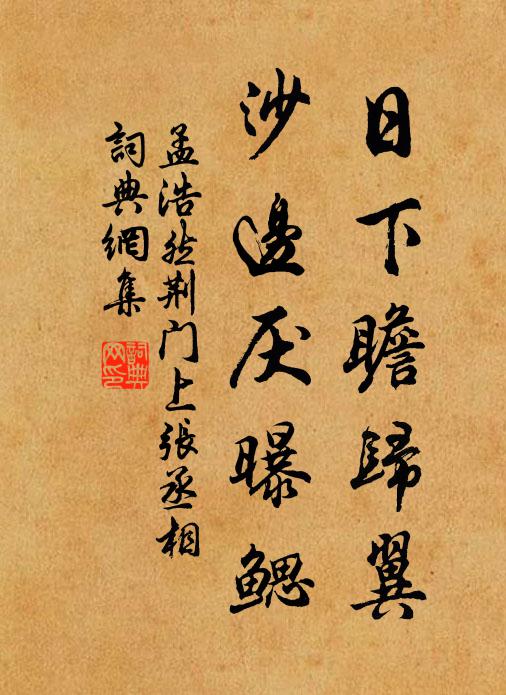 日下瞻歸翼
沙邊厌曝鳃
孟浩然荆门上張丞相
詞典網集
詞典網印